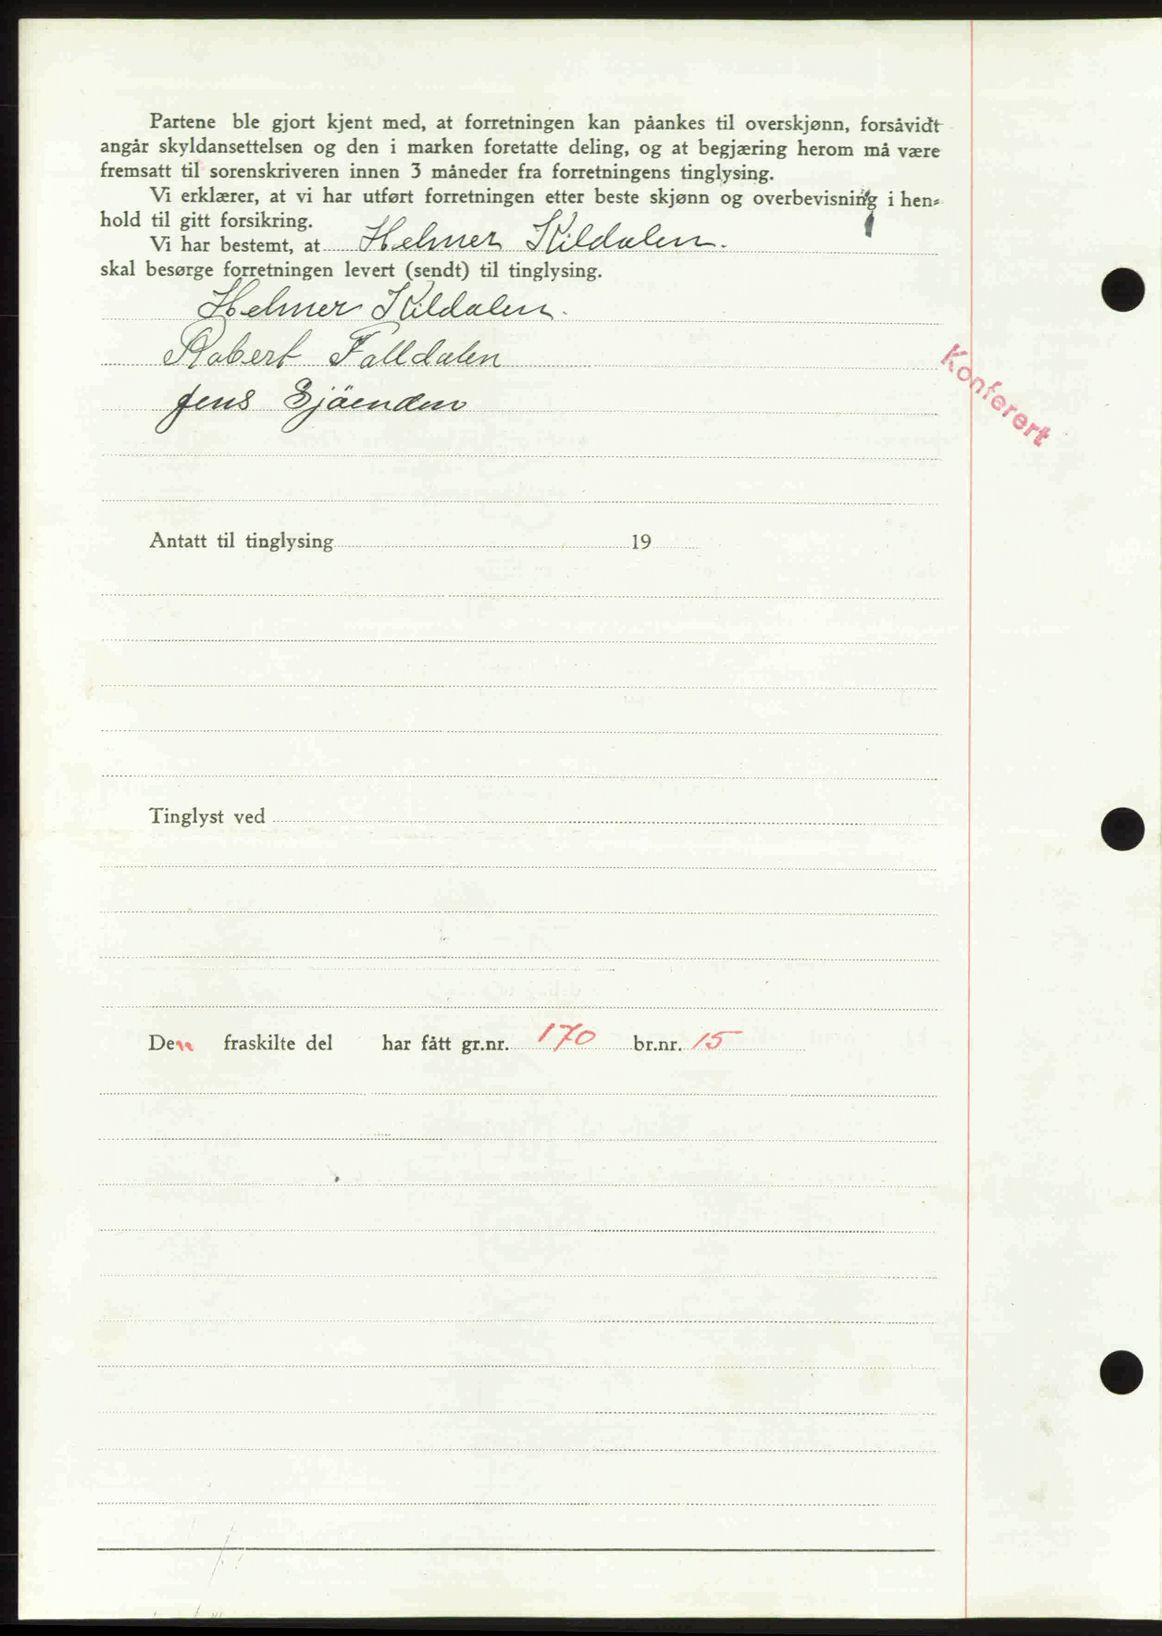 Partene ble gjort kjent med, at forretningen kan påankes til overskjønn, forsåvidt
angår skyldansettelsen og den i marken foretatte deling, og at begjæring herom må være
fremsatt til sorenskriveren innen 3 måneder fra forretningens tinglysing.
Vi erklærer, at vi har utført forretningen etter beste skjønn og overbevisning i hen-
hold til gitt forsikring.
Vi har bestemt, at Helmer Kildalen.
skal besørge forretningen levert (sendt) til tinglysing.
Helmer Kildalen.
Robert Falldalen
Jens Sjöenden
Konferert
Antatt til tinglysing 19
Tinglyst ved
Den fraskilte del har fått gr.nr. 170 br.nr. 15